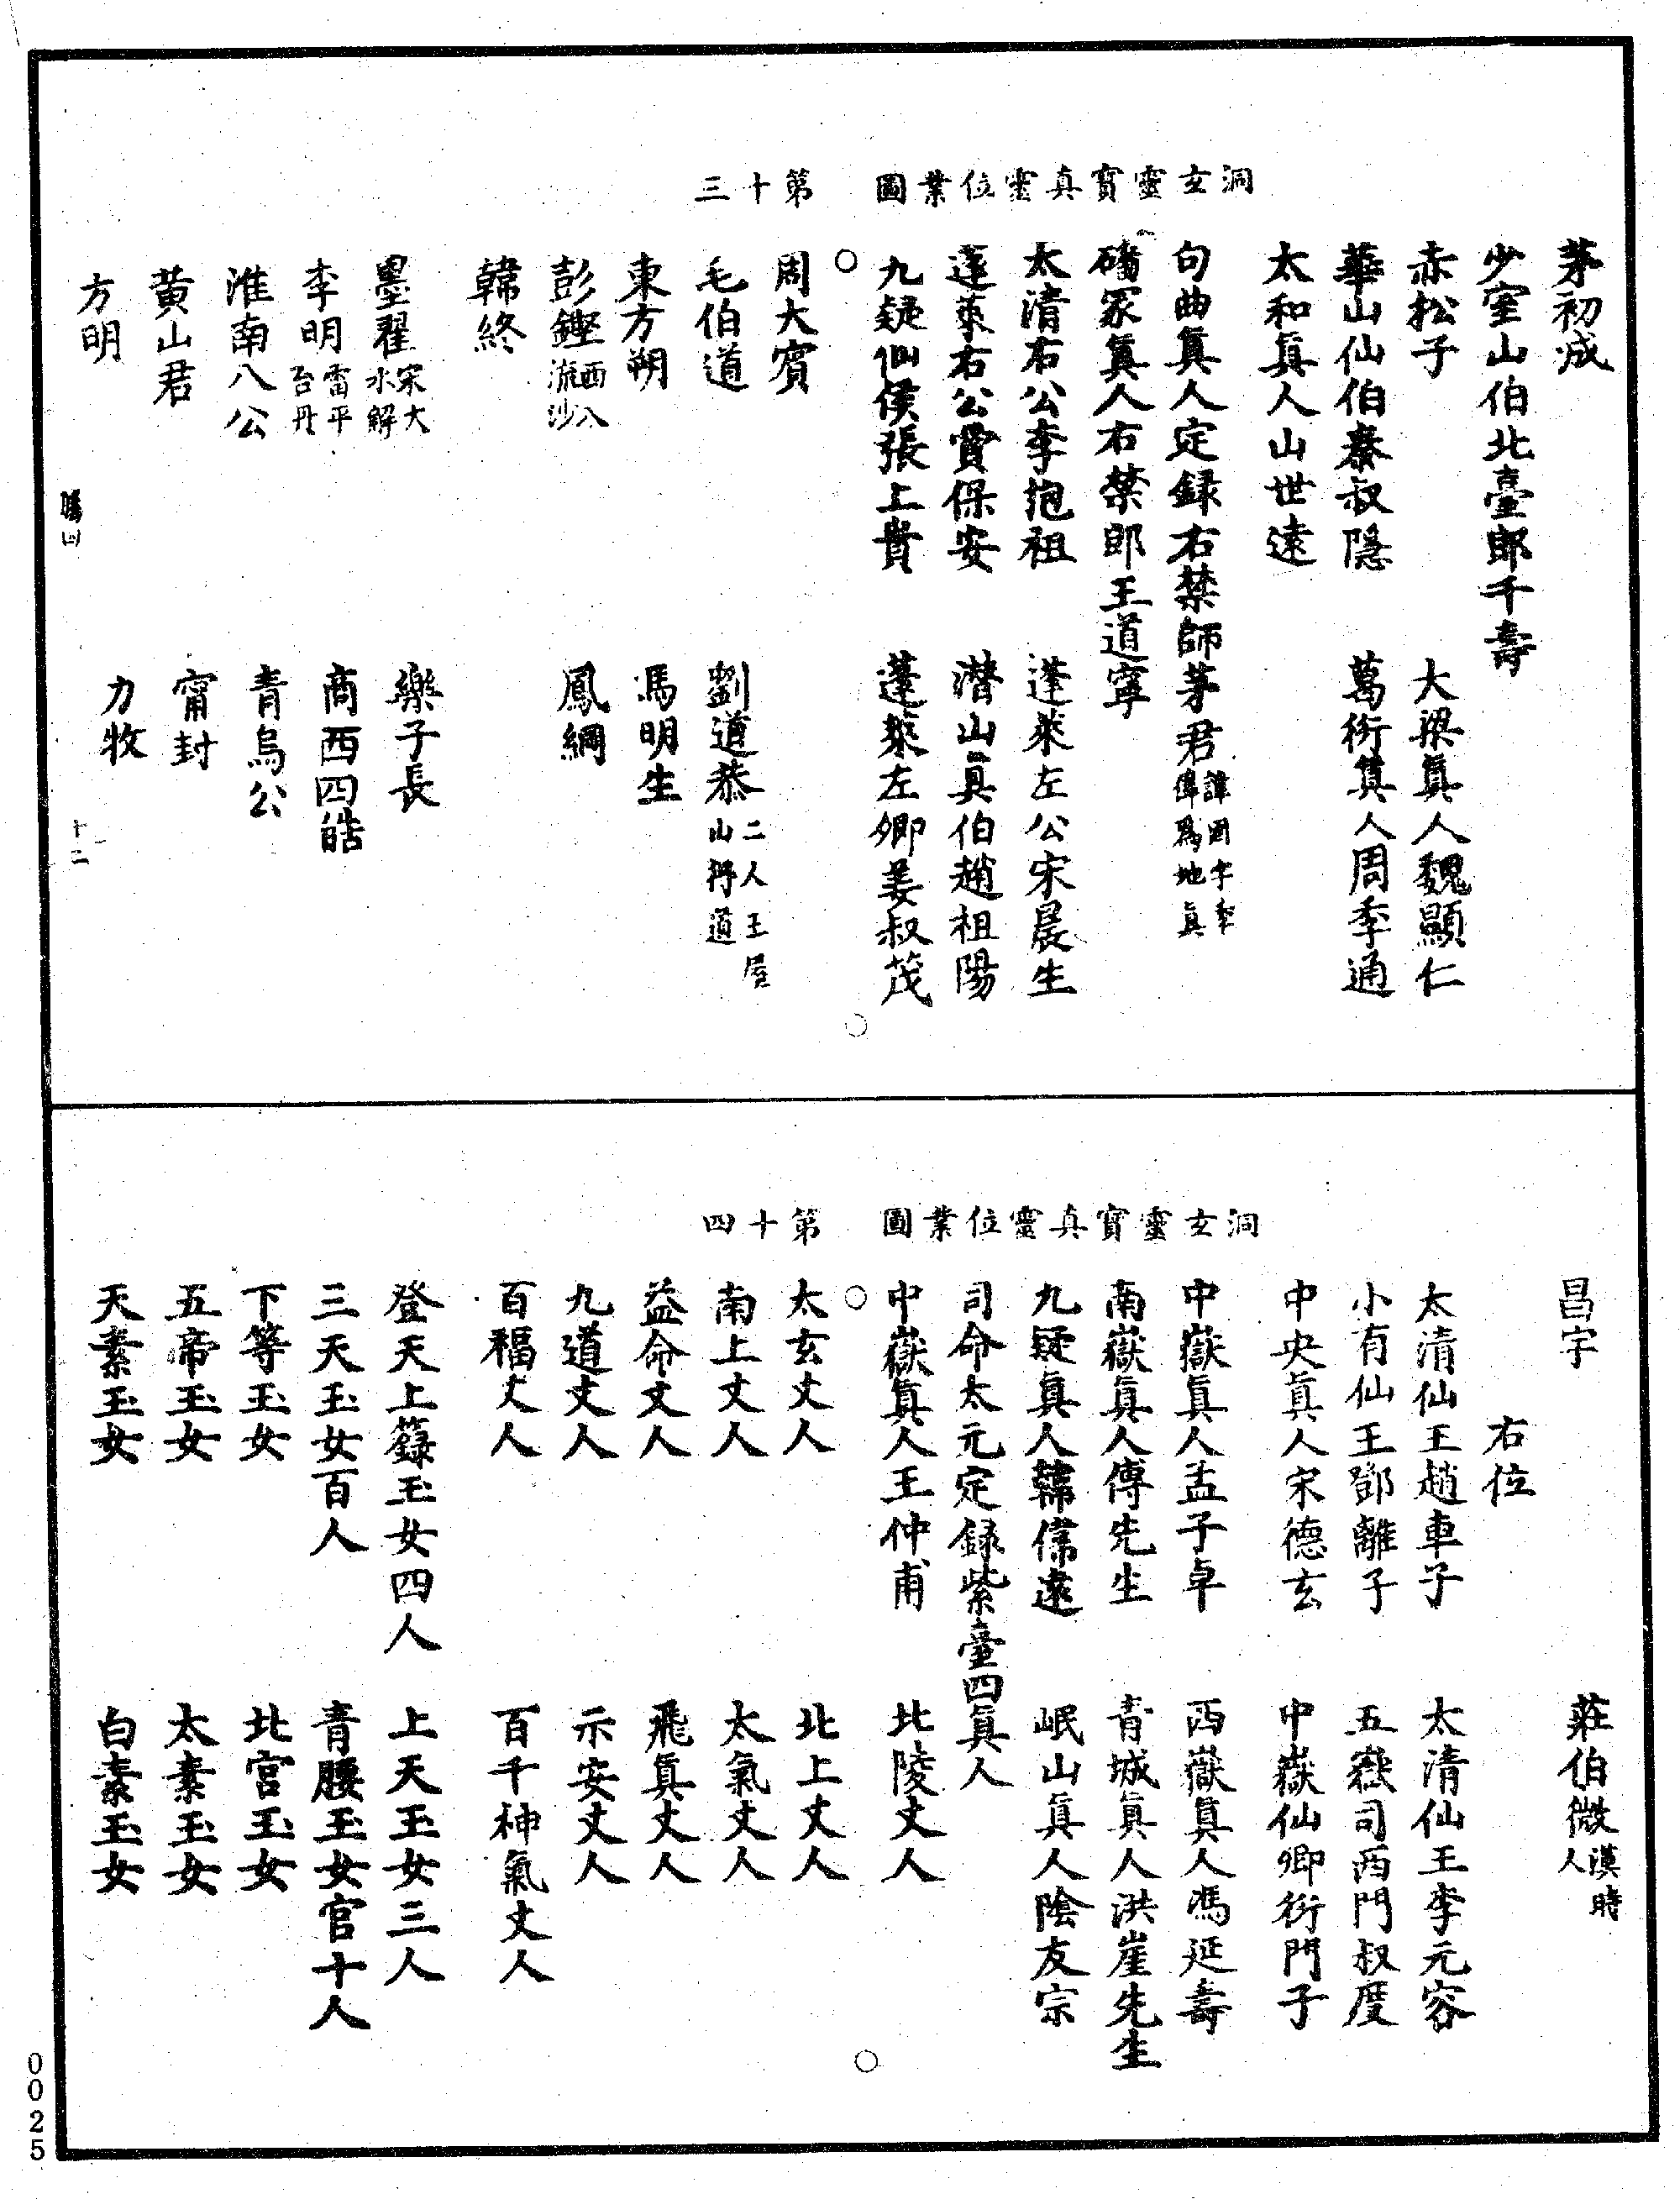 茅初成
少室山伯北臺郎千壽
赤松子　大梁真人魏顯仁
華山仙伯秦叔隱　萬衡真人周季通
太和真人山世遠
句曲真人定録右禁師茅君諱固字季偉爲地真
磻冢真人右禁郎王道寧
太清右公李抱祖　蓬萊左公宋晨生
蓬萊右公賈保安　潜山真伯趙祖陽
九疑仙侯張上貴　蓬萊左卿姜叔茂
洞玄靈寶真靈位業圖　第十三
周大賓
毛伯道　劉道恭二人王屋山得道
東方朔　馮明生
彭鏗西入流沙　鳳綱
韓終
墨翟宋大水解　樂子長
李明雷平合丹　商西四皓
淮南八公　青烏公
黄山君　甯封
方明　力牧
騰四　十二
昌宇　莊伯微漢時人
右位
太清仙王趙車子　太清仙王李元容
小有仙王鄧離子　五嶽司西門叔度
中央真人宋德玄　中嶽仙卿衍門子
中嶽真人孟子卓　西嶽真人馮延壽
南嶽真人傅先生　青城真人洪崖先生
九疑真人韓偉遠　岷山真人陰友宗
司命太元定録紫臺四真人
中嶽真人王仲甫　北陵丈人
洞玄靈寶真靈位業圖　第十四
太玄丈人　北上丈人
南上丈人　太氣丈人
益命丈人　飛真丈人
九道丈人　示安丈人
百福丈人　百千神氣丈人
登天上籙玉女四人　上天玉女三人
三天玉女百人　青腰玉女官十人
下等玉女　北宫玉女
五帝玉女　太素玉女
天素玉女　白素玉女
0025